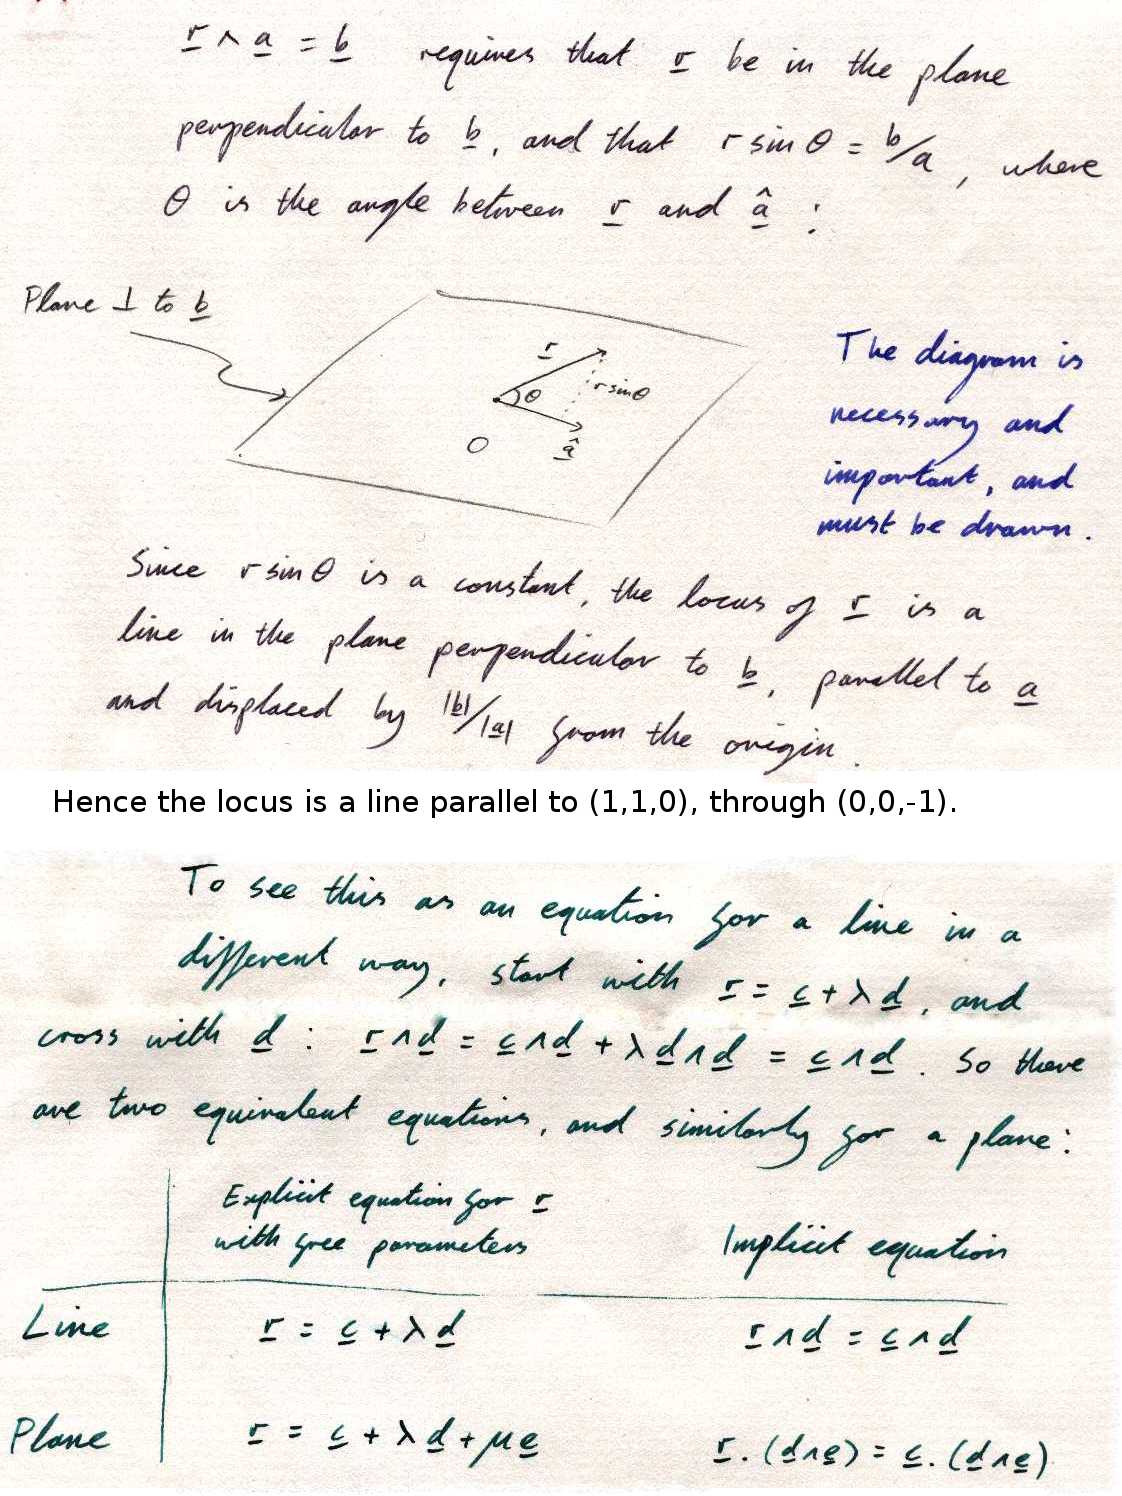 r ∧ a = b requires that r be in the plane
perpendicular to b, and that r sin θ = b/a, where
θ is the angle between r and â :
Plane ⊥ to b
r
θ
r sin θ
O
â
The diagram is
necessary and
important, and
must be drawn.
Since r sin θ is a constant, the locus of r is a
line in the plane perpendicular to b, parallel to a
and displaced by |b|/|a| from the origin.
Hence the locus is a line parallel to (1,1,0), through (0,0,-1).
To see this as an equation for a line in a
different way, start with r = c + λd, and
cross with d : r ∧ d = c ∧ d + λ d ∧ d = c ∧ d. So there
are two equivalent equations, and similarly for a plane:
Explicit equation for r
with free parameters
Implicit equation
Line r = c + λ d r ∧ d = c ∧ d
Plane r = c + λ d + μ e r . (d ∧ e) = c . (d ∧ e)